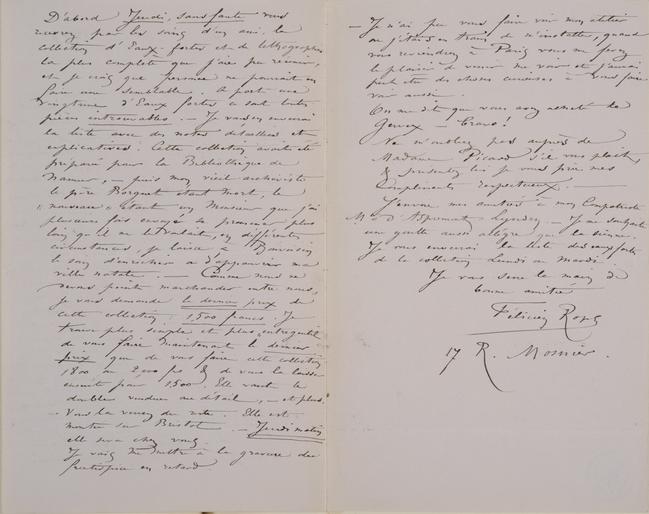 D'abord Jeudi, sans faute vous
recevrez par les soins d'un ami la
collection d'Eaux-fortes et de lithographies
la plus complète que j'aie pu réunir,
et je crois que personne ne pourrait en
faire une semblable. A part une
vingtaine d'Eaux fortes ce sont toutes
pièces introuvables. — Je vous en enverrai
la liste avec des notes détaillées et
explicatives. Cette collection avait été
préparée pour la Bibliothèque de
Namur, — puis mon vieil archiviste
le père Borgnet étant mort, le
« nouveau » étant un Monsieur que j'ai
plusieurs fois envoyé se promener plus
loin qu'il ne le voulait, en différentes
circonstances, je laisse à
le soin d'enrichir ou d'appauvrir ma
ville natale. — Comme nous ne
devons point marchander entre nous,
je vous demande le dernier prix de
cette collection : 1,500 francs. Je
trouve plus simple et plus
de vous faire maintenant le dernier
prix que de vous faire cette collection
1800 ou 2,000 fs & de vous la laisser
ensuite pour 1500. Elle vaut le
double vendue au détail, — et plus.
Vous la venez de suite. Elle est
montée sur Bristol. — Jeudi matin
elle sera chez vous.
Je vais me mettre à la gravure du
frontispice en retard.
— Je n'ai pu vous faire voir mon atelier
car j'étais en train de m'installer, quand
vous reviendrez à Paris vous me ferez
le plaisir de venir me voir et j'aurai
peut être des choses curieuses à vous faire
voir aussi.
On me dit que vous avez acheté du
Gervex — Bravo!
Ne m'oubliez pas auprès de
Madame Picard s'il vous plaît,
& présentez lui je vous prie mes
compliments respectueux. —
J'envoie mes amitiés à mon Compatriote
M. d'Aspremont Lynden, — Je me souhaite
une goutte aussi allègre que la sienne.
Je vous enverrai la liste des eaux fortes
de la collection Lundi ou Mardi.
Je vous serre la main de
bonne amitié
Félicien Rops
17 R. Mosnier.